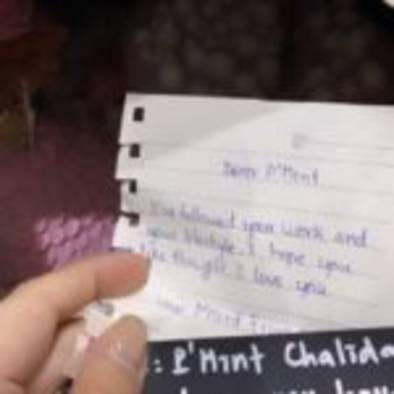 Dear P'Mint
I've followed your work and
your lifestyle. I hope you
like though. I love you
Mint
: P'Mint Chalida
you